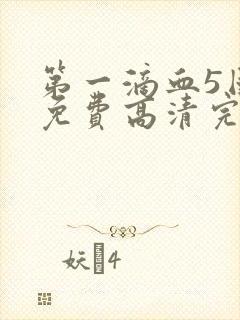 第一滴血5国
免费高清完
妖4